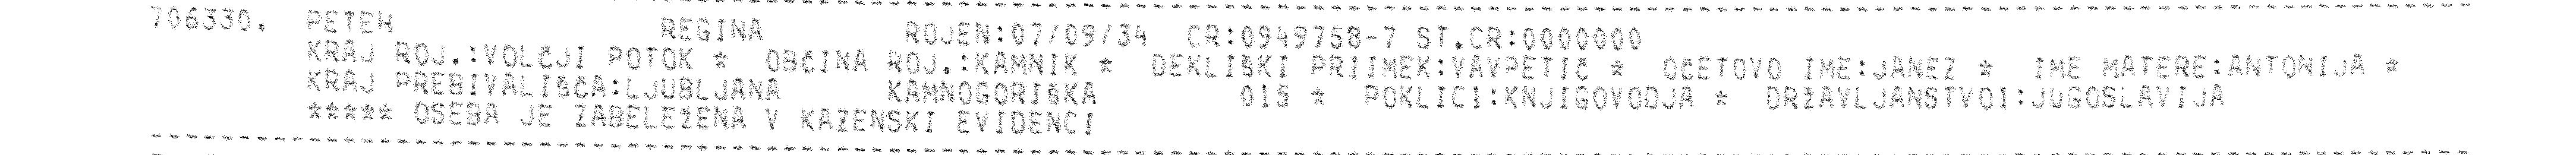 706330. PETEH REGINA ROJEN:07/09/34 CR:0949758-7 ST.CR:0000000
KRAJ ROJ.:VOLČJI POTOK * OBČINA ROJ.:KAMNIK * DEKLIŠKI PRIIMEK:VAVPETIČ * OČETOVO IME:JANEZ * IME MATERE:ANTONIJA *
KRAJ PREBIVALIŠČA:LJUBLJANA KAMNOGORIŠKA 015 * POKLICI:KNJIGOVODJA * DRŽAVLJANSTVOI:JUGOSLAVIJA
***** OSEBA JE ZABELEŽENA V KAZENSKI EVIDENCI